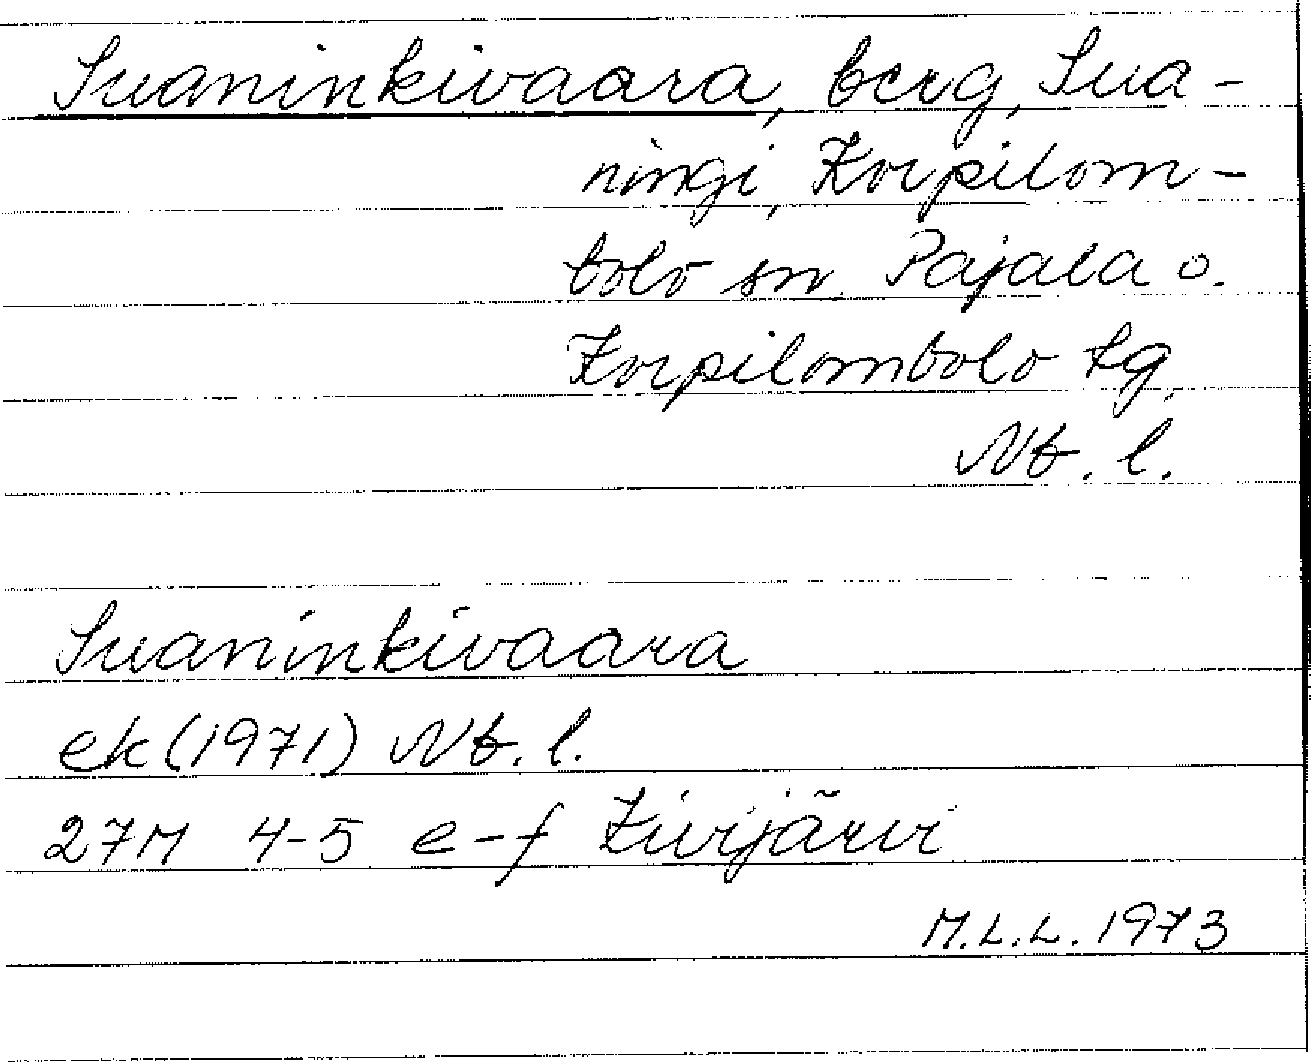 Suaninkivaara, berg, Sua-
ningi, Korpilom-
bolo sn. Pajala o.
Korpilombolo tg.
Nb. l.
Suaninkivaara
ek (1971) Nb. l.
27M 4-5 e-f Kivijärvi
M.L.L. 1973